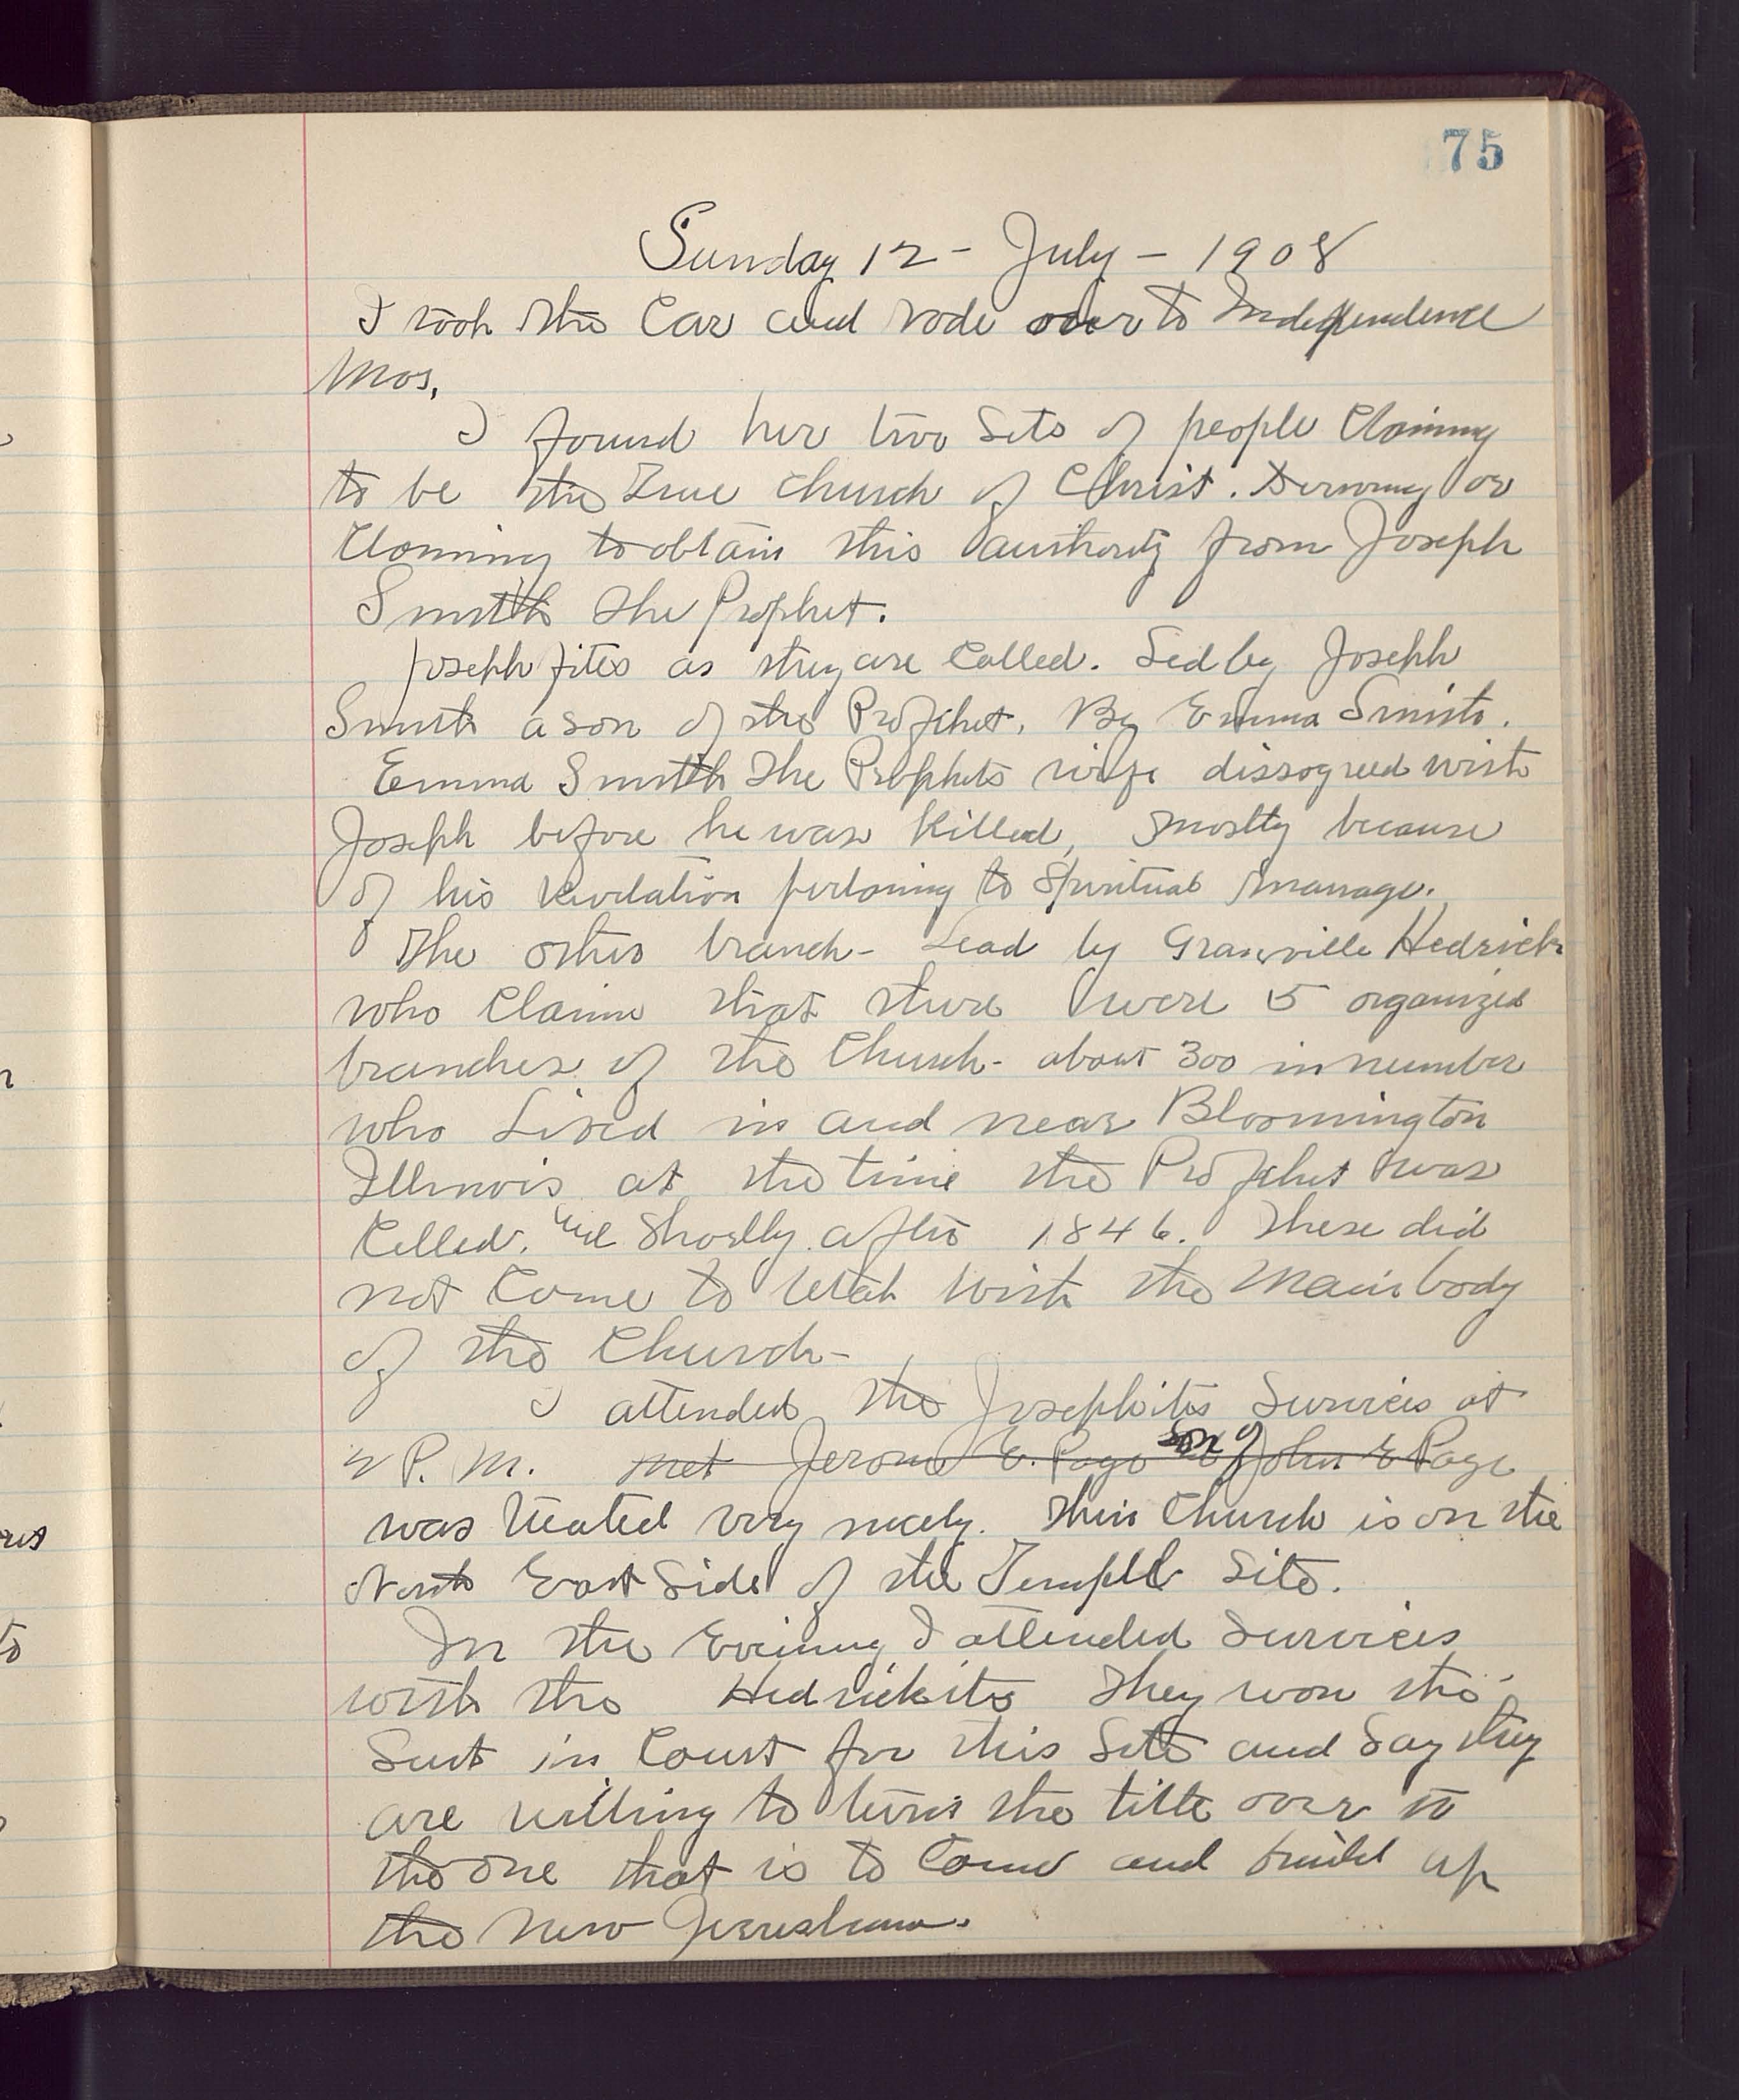 75
Sunday 12 - July - 1908
I took the Car and rode over to Independence
Mos.
I found her two Sets of people Claiming
to be the True Church of Christ. Deriving or
Claiming to obtain this authority from Joseph
Smith the Prophet.
Josephfites as they are Called. Led by Joseph
Smith a son of the Prophet, By Emma Smith.
Emma Smith the Prophets wife dissagreed with
Joseph before he was Killed, mostly because
of his Revelation pertaning to Spiritual marrage.
The other branch - Lead by Granville Hedrick
who Claime that there were 5 organized
branches of the Church - about 300 in number
who Lived in and near Bloomington
Illinois at the time the Prophet was
Celled. Shortly after 1846. These did
not Come to Utah with the Main body
of the Church -
I attended the Josephites Services at
2 P.M. met Jerome E. Page son of John E Page
was treated very nicely. Their Church is on the
North East Side of the Temple Site.
In the Evening I attended Services
with the Hedrickites They won the
Suit in Court for this Site and Say they
are willing to turn the title over to
the one that is to Come and build up
the New Jerusleum.